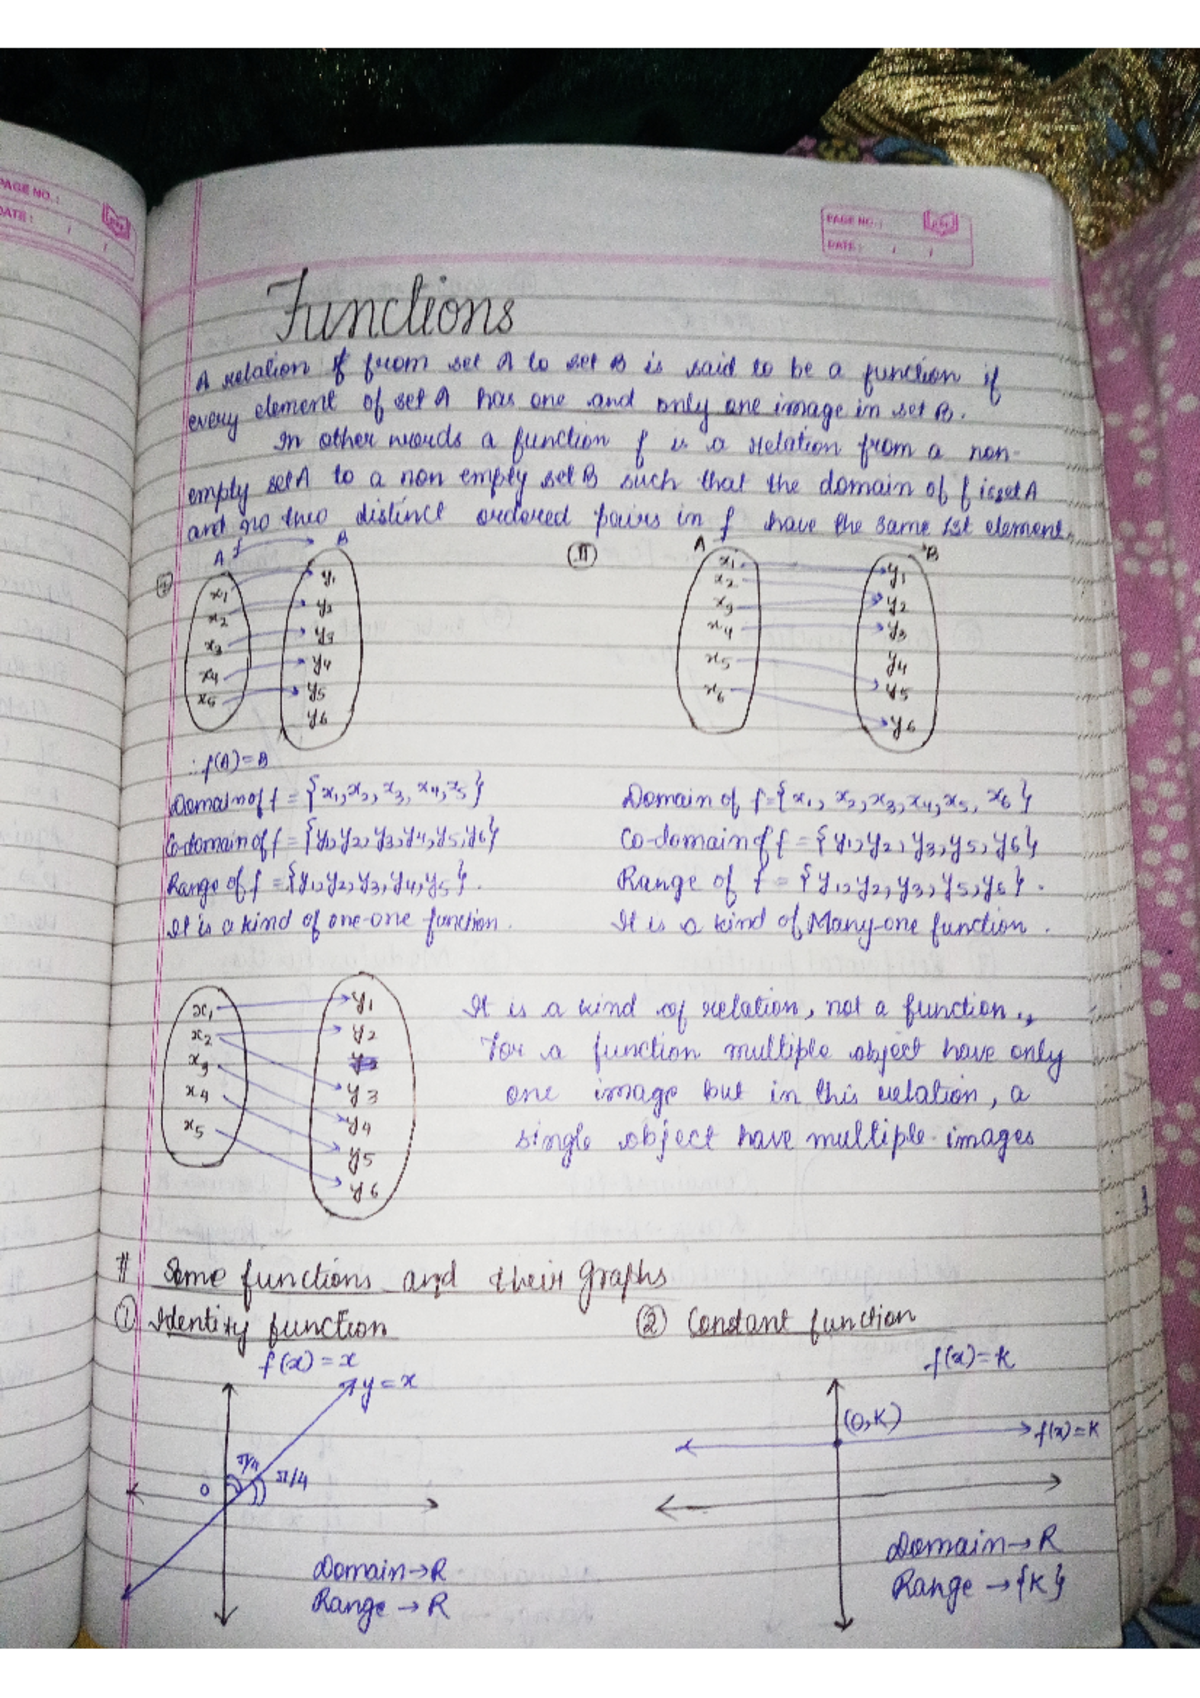 PAGE NO.:
DATE: / /
PAGE NO.:
DATE: / /
Functions
A relation f from set A to set B is said to be a function if
every element of set A has one and only one image in set B.
In other words a function f is a relation from a non-
empty set A to a non empty set B such that the domain of f is set A
and no two distinct ordered pairs in f have the same 1st element.
A f B
x1 y1
x2 y2
x3 y3
x4 y4
x5 y5
y6
II
A B
x1 y1
x2
x3 y2
x4 y3
x5 y4
x6 y5
y6
∴ f(A) = B
Domain of f = {x1, x2, x3, x4, x5}
Co-domain of f = {y1, y2, y3, y4, y5, y6}
Range of f = {y1, y2, y3, y4, y5}.
It is a kind of one-one function.
Domain of f = {x1, x2, x3, x4, x5, x6}
Co-domain of f = {y1, y2, y3, y5, y6}
Range of f = {y1, y2, y3, y5, y6}.
It is a kind of Many-one function.
x1 y1
x2 y2
x3 y3
x4 y4
x5 y5
y6
It is a kind of relation, not a function.,
For a function multiple object have only
one image but in this relation, a
single object have multiple images
# Some functions and their Graphs
① Identity function
f(x) = x
y = x
π/4
π/4
O
Domain → R
Range → R
② Constant function
f(x) = K
(0, K)
f(x) = K
Domain → R
Range → {K}